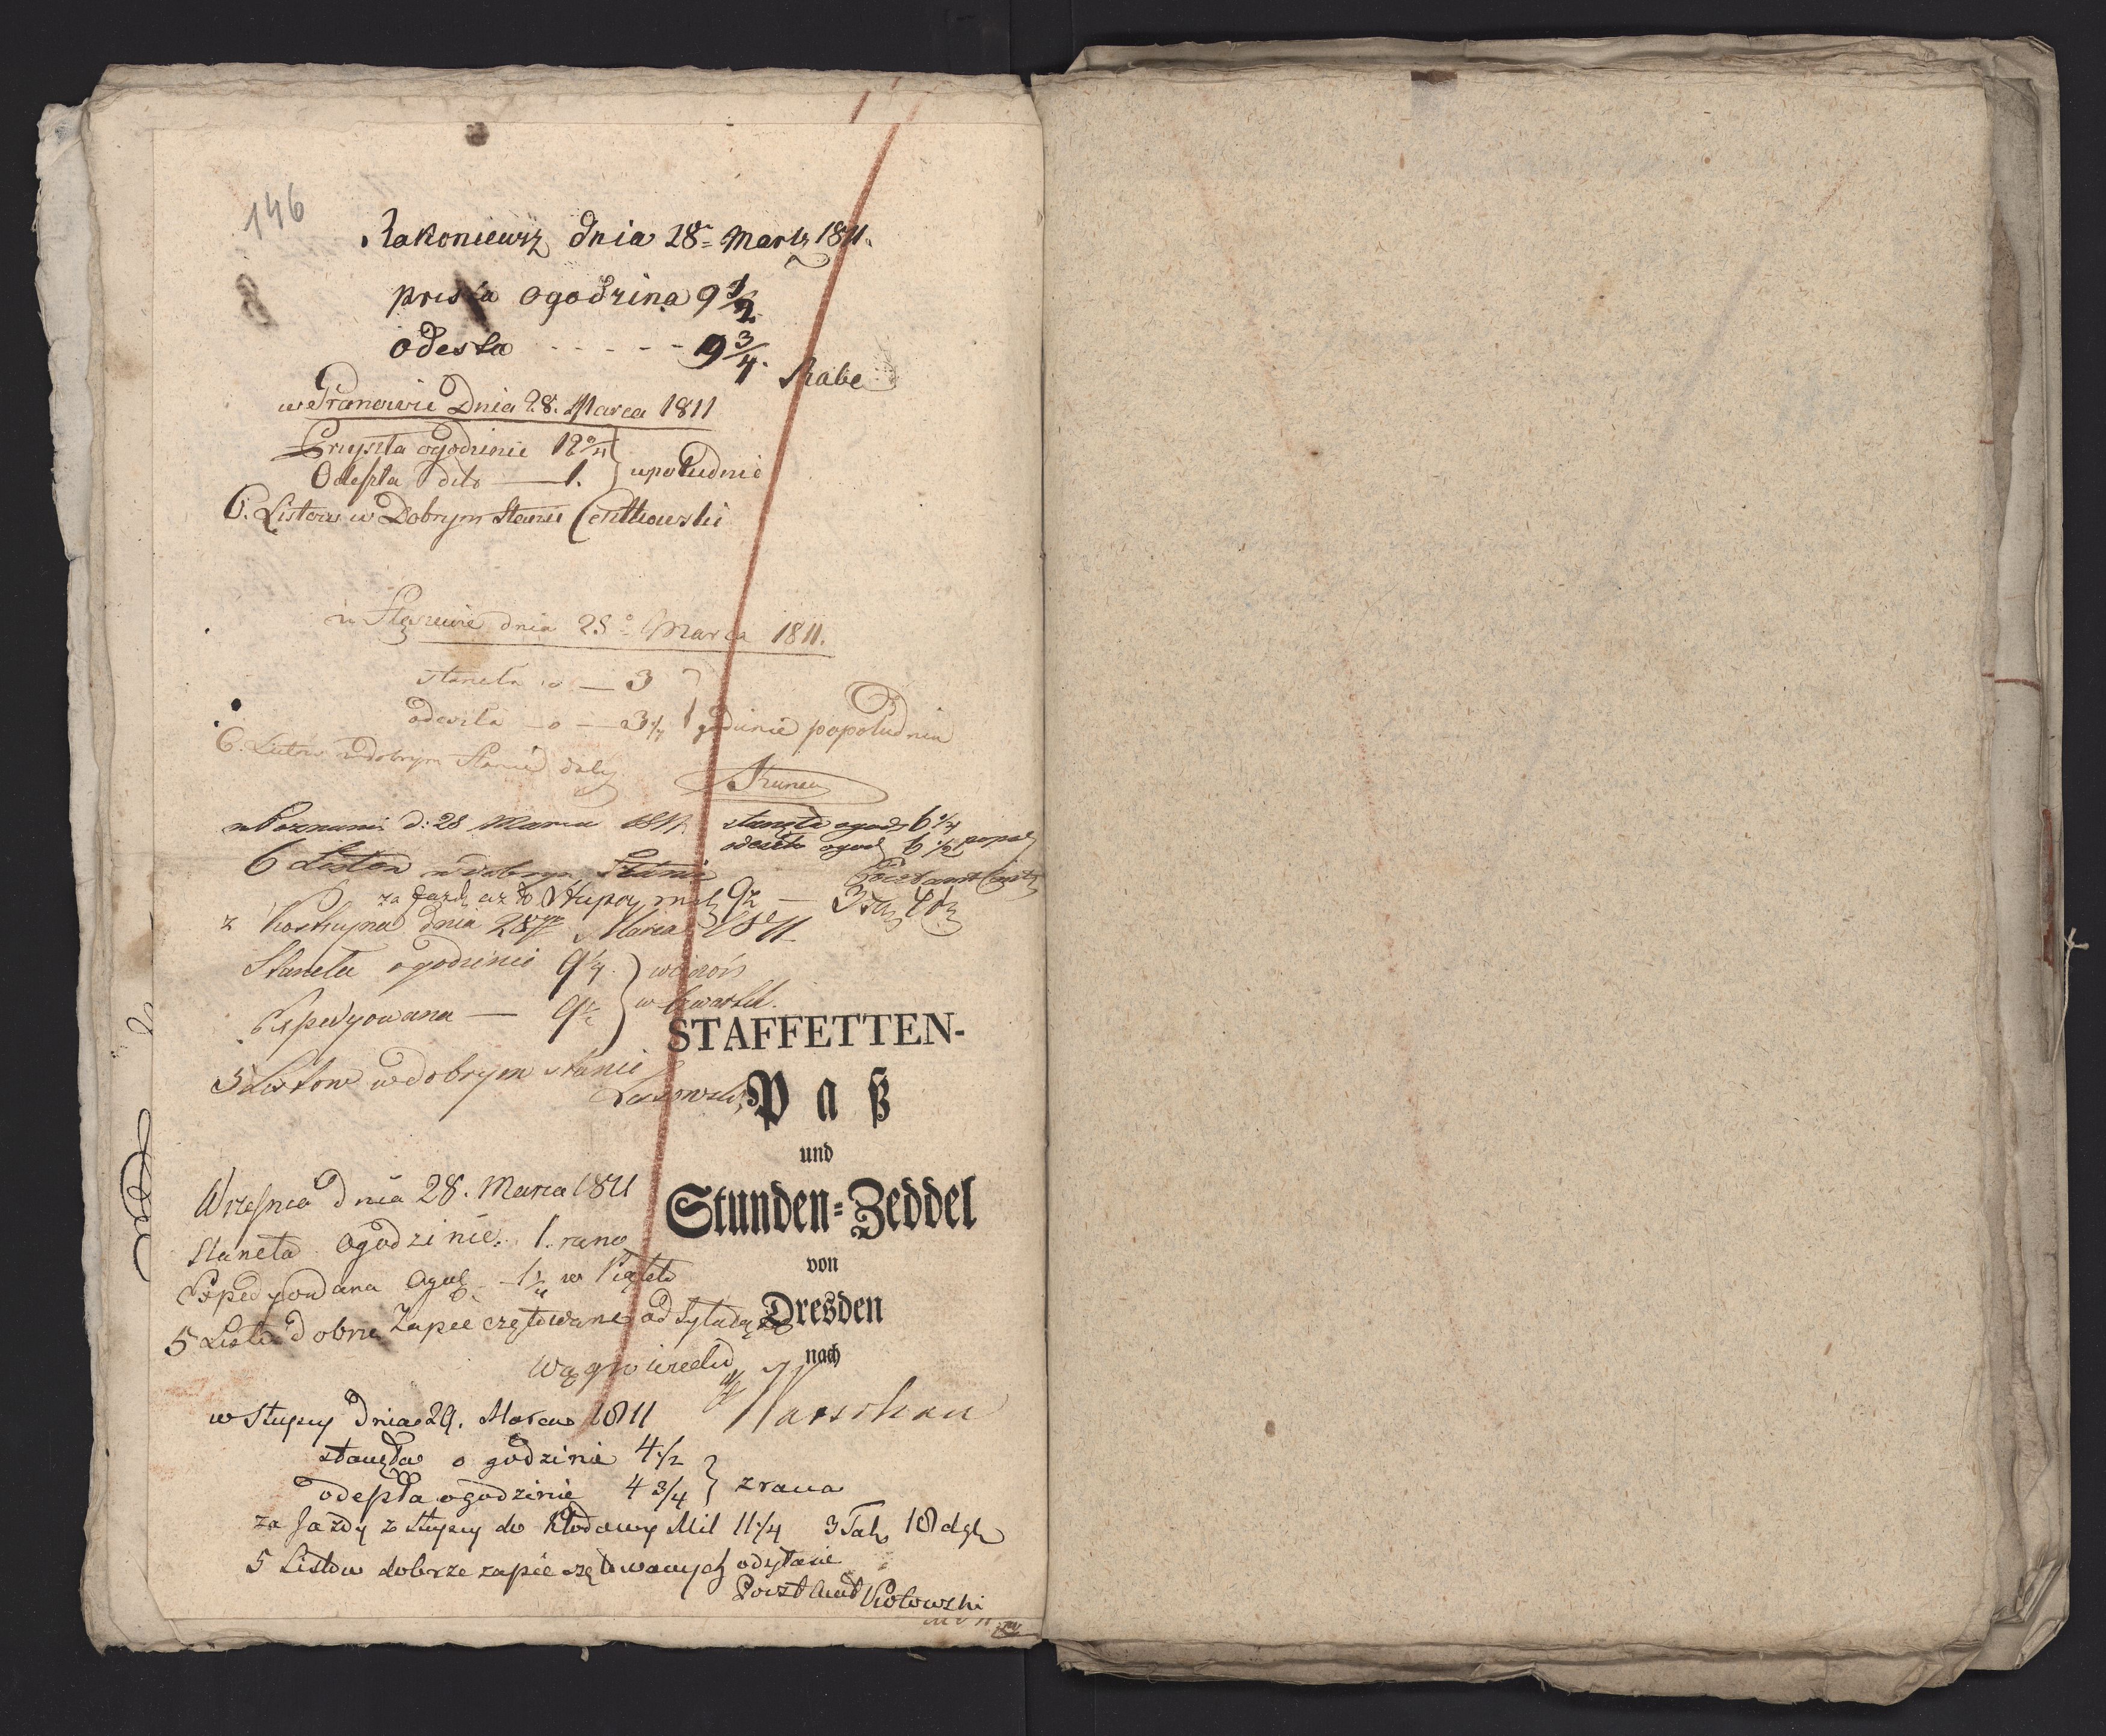 146
Rakoniewiz dnia 28. Martz 1811.
prisła ogodzina 9 1/2
odesła - - - - - 9 3/4.
Rabe
w Granowie Dnia 28. Marca 1811
Przyszła ogodzinie 12 3/4
Odeszła dito — 1. } wpołudnie
6. Listow w Dobrym Stanie
w Stęszewie dnia 28 Marca 1811.
stanęła o — 3
odeszła — o — 3 1/4 godzinie popołudniu
6. Listow w dobrym Stanie
w Poznaniu d: 28 Marca 1811 stanęła ogodz 6 1/4
odeszła ogodz 6 1/2 popoł
6 Listow w dobrym Stanie
za Jazdę aż do Słupcy mil 9 1/2 — 3
z Kostrzyna dnia 28go Marca 1811
Stanęła ogodzinie 9 1/4 } wieczór
Expedyowana — 9 1/2 } w czwartek.
5 Listow w dobrym stanie
STAFFETTEN-
Paß
und
Stunden-Zeddel
von
Dresden
nach
Warschau
Wrześnea dnia 28. Marca 1811
Staneła ogodzinie. 1. rano
Expedyowana ogodz. 1 1/4 w Piątek
5 Listow dobrze zapieczętowane odsyła
w Słupcy dnia 29. Marca 1811
stanęła o godzinie 4 1/2
odeszła ogodzinie 4 3/4 } zrana
za Jazdy z Słupcy do Kłodawy Mil 11 1/4 3 Tal. 18 dgr
5 Listow dobrze zapieczętowanych odsyłanie
Poczt Amt